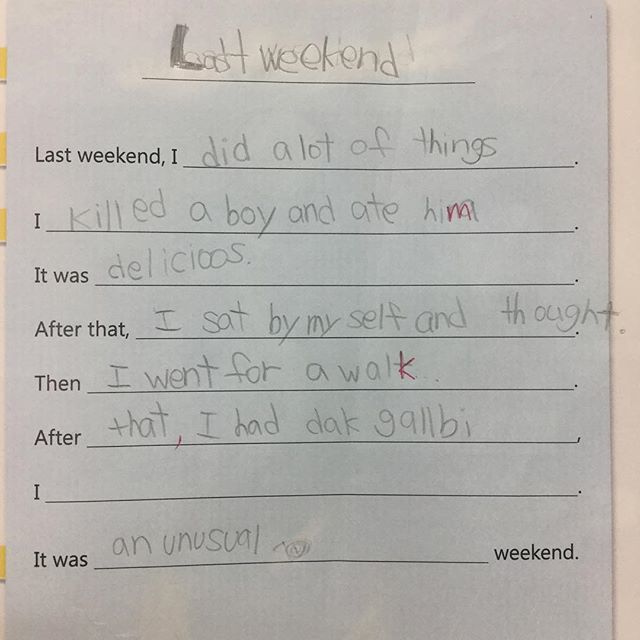 Last weekend
Last weekend, I did a lot of things.
I killed a boy and ate him.
It was delicioos.
After that, I sat by my self and thought.
Then I went for a walk.
After that, I had dak gallbi,
I .
It was an unusual weekend.